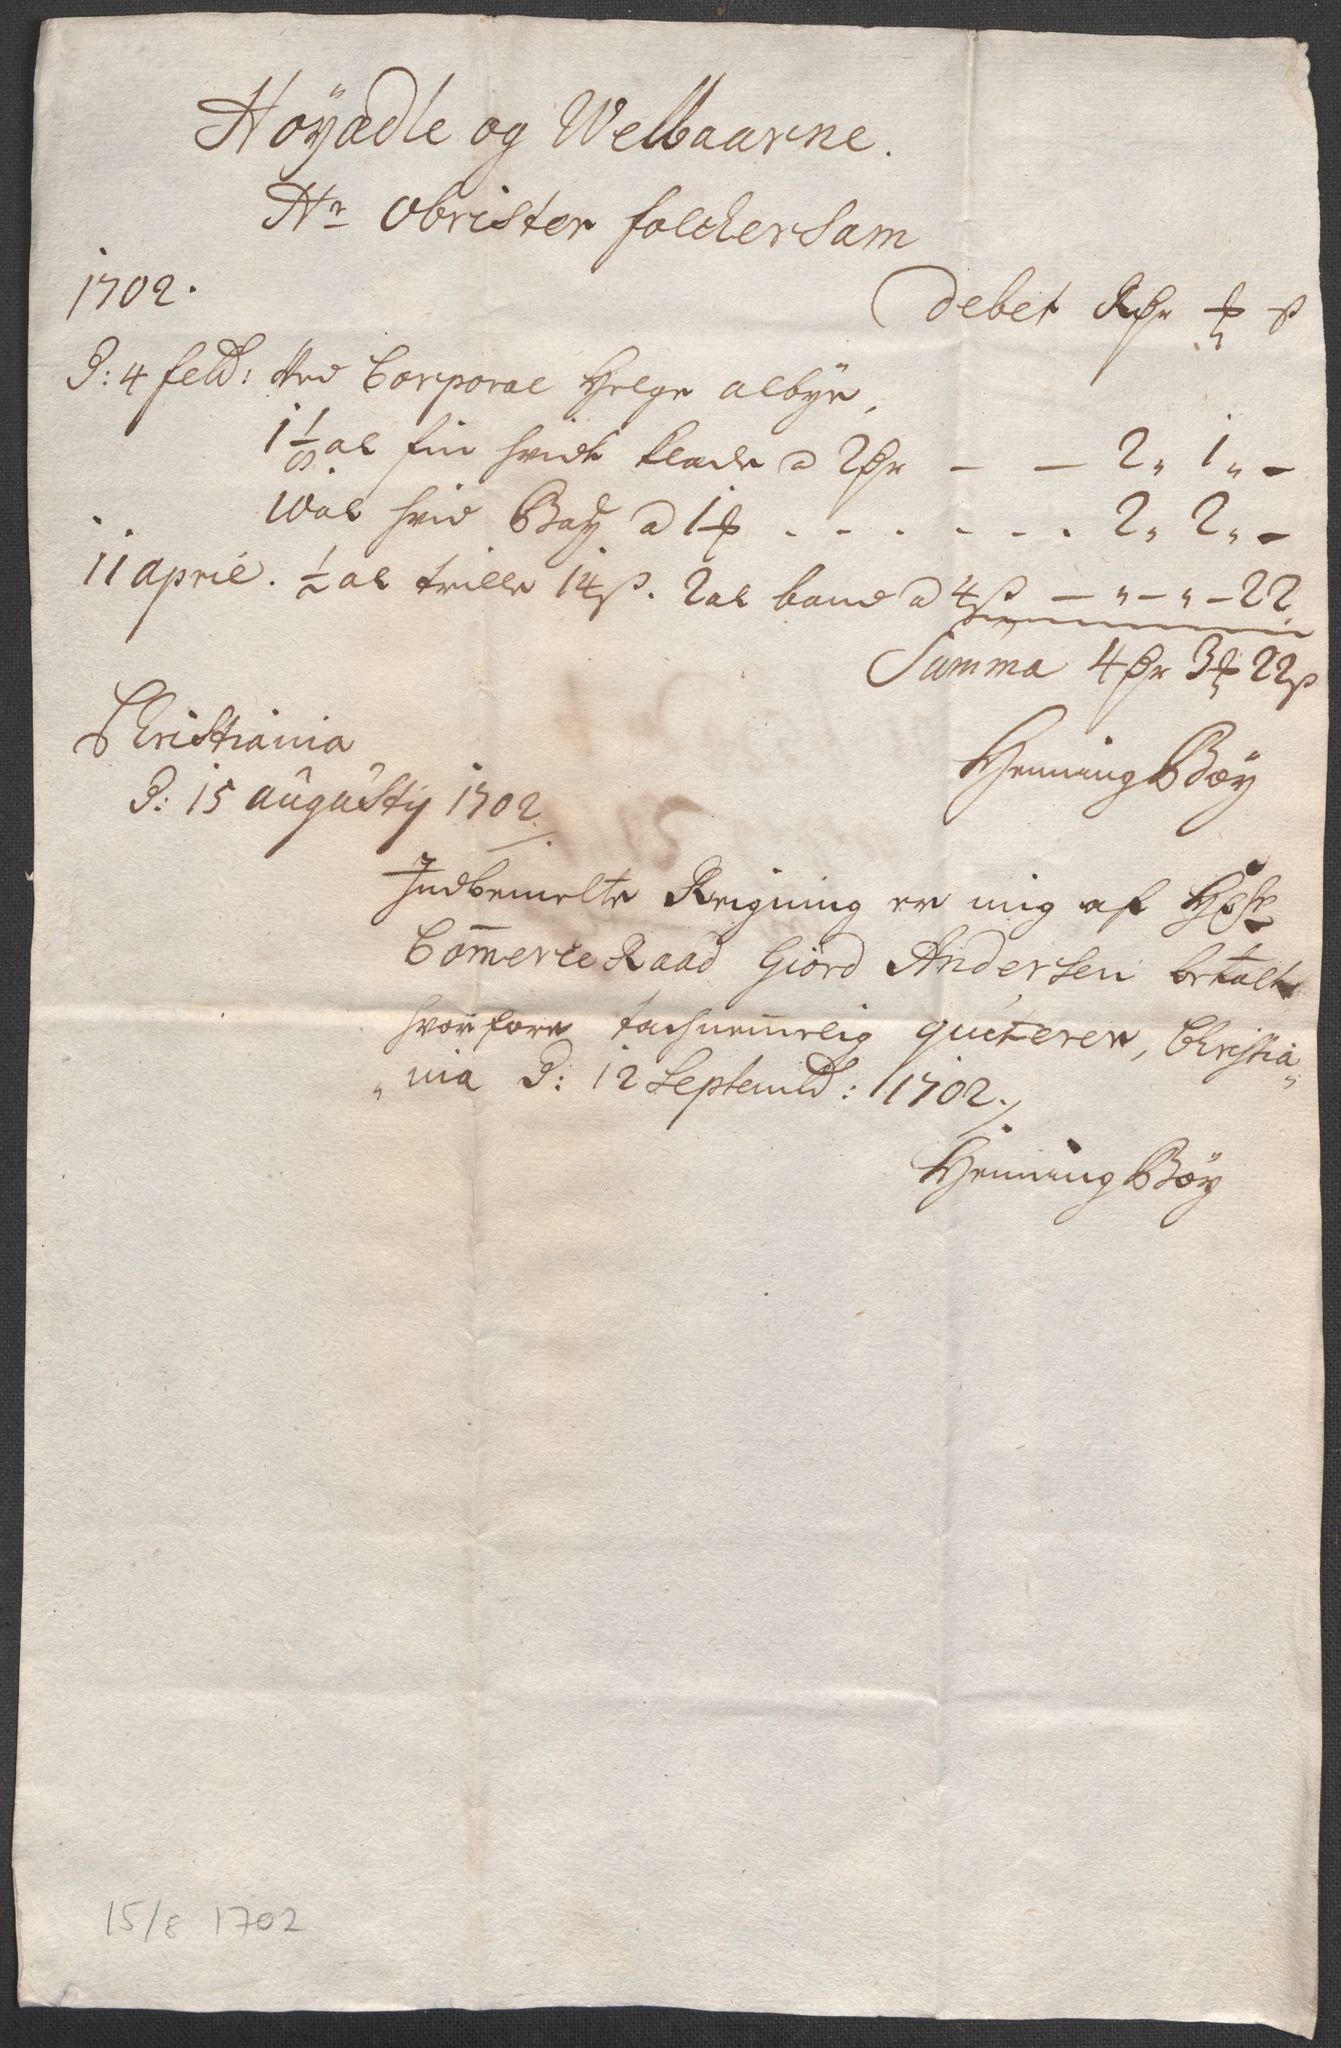 Høyædle og Welbaarne.
Hr Obrister folckersam
1702.
Debet Rdr ℔ ß
D: 4 feb: Ved Corporal Helge albye,
1 1/8 al fin hvidt klæde a 2dr — — 2 " 1 " —
10 al hvid Bay a 1 ℔ . - . - . - . 2 " 2 " —
11 april. ½ al trille 14 ß. 2 al band a 4 ß — " — " — 22
Summa 4 dr 3 ℔ 22 ß
Christiania
D: 15 augustij 1702
Henning Bøy
Indbemelte Reigning er mig af
Com̄erce Raad Giord Andersen betalt
hvorfore tachnem̄elig quiterer, Christia
"nia D: 12 Septembr: 1702.
Henning Bøy
15/8 1702